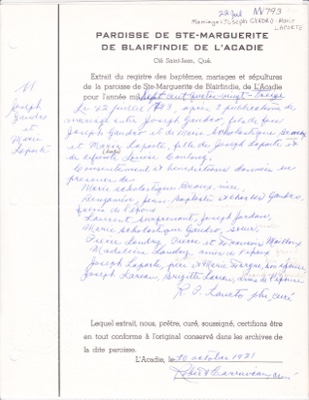 22 juil NV793
Mariages: Joseph GAUDRO - Marie
LAPORTE
PAROISSE DE STE-MARGUERITE
DE BLAIRFINDIE DE L'ACADIE
Cté Saint-Jean, Qué.
Extrait du registre des baptêmes, mariages et sépultures
de la paroisse de Ste-Marguerite de Blairfindie, de L'Acadie
pour l'année mil sept cent quatre-vingt-treize
M
Joseph
Gaudro
et
Marie
Laporte
Le 22 juillet 1793, après 2 publications de
mariage entre Joseph Gaudro, fils de feu
Joseph Gaudro et de Marie Scholastique
et Marie Laporte, fille de Joseph Laporte et
de défunte Louise
Consentement et bénédiction donnés en
présence de
Marie Scholastique mère,
Benjamin, Jean Baptiste et Charles Gaudro,
frères de l'époux
Laurent Surprenant, Joseph
Marie Scholastique Gaudro, soeur,
Pierre Landry, Pierre et François Mailloux
Madeleine Landry, amis de l'époux
Joseph Laporte, père et Marie son épouse
Joseph Brigitte amis de l'épouse
R. P. Lancto ptre, curé
Lequel extrait, nous, prêtre, curé, soussigné, certifions être
en tout conforme à l'original conservé dans les archives
de la dite paroisse.
L'Acadie, le 10 octobre 1981
curé